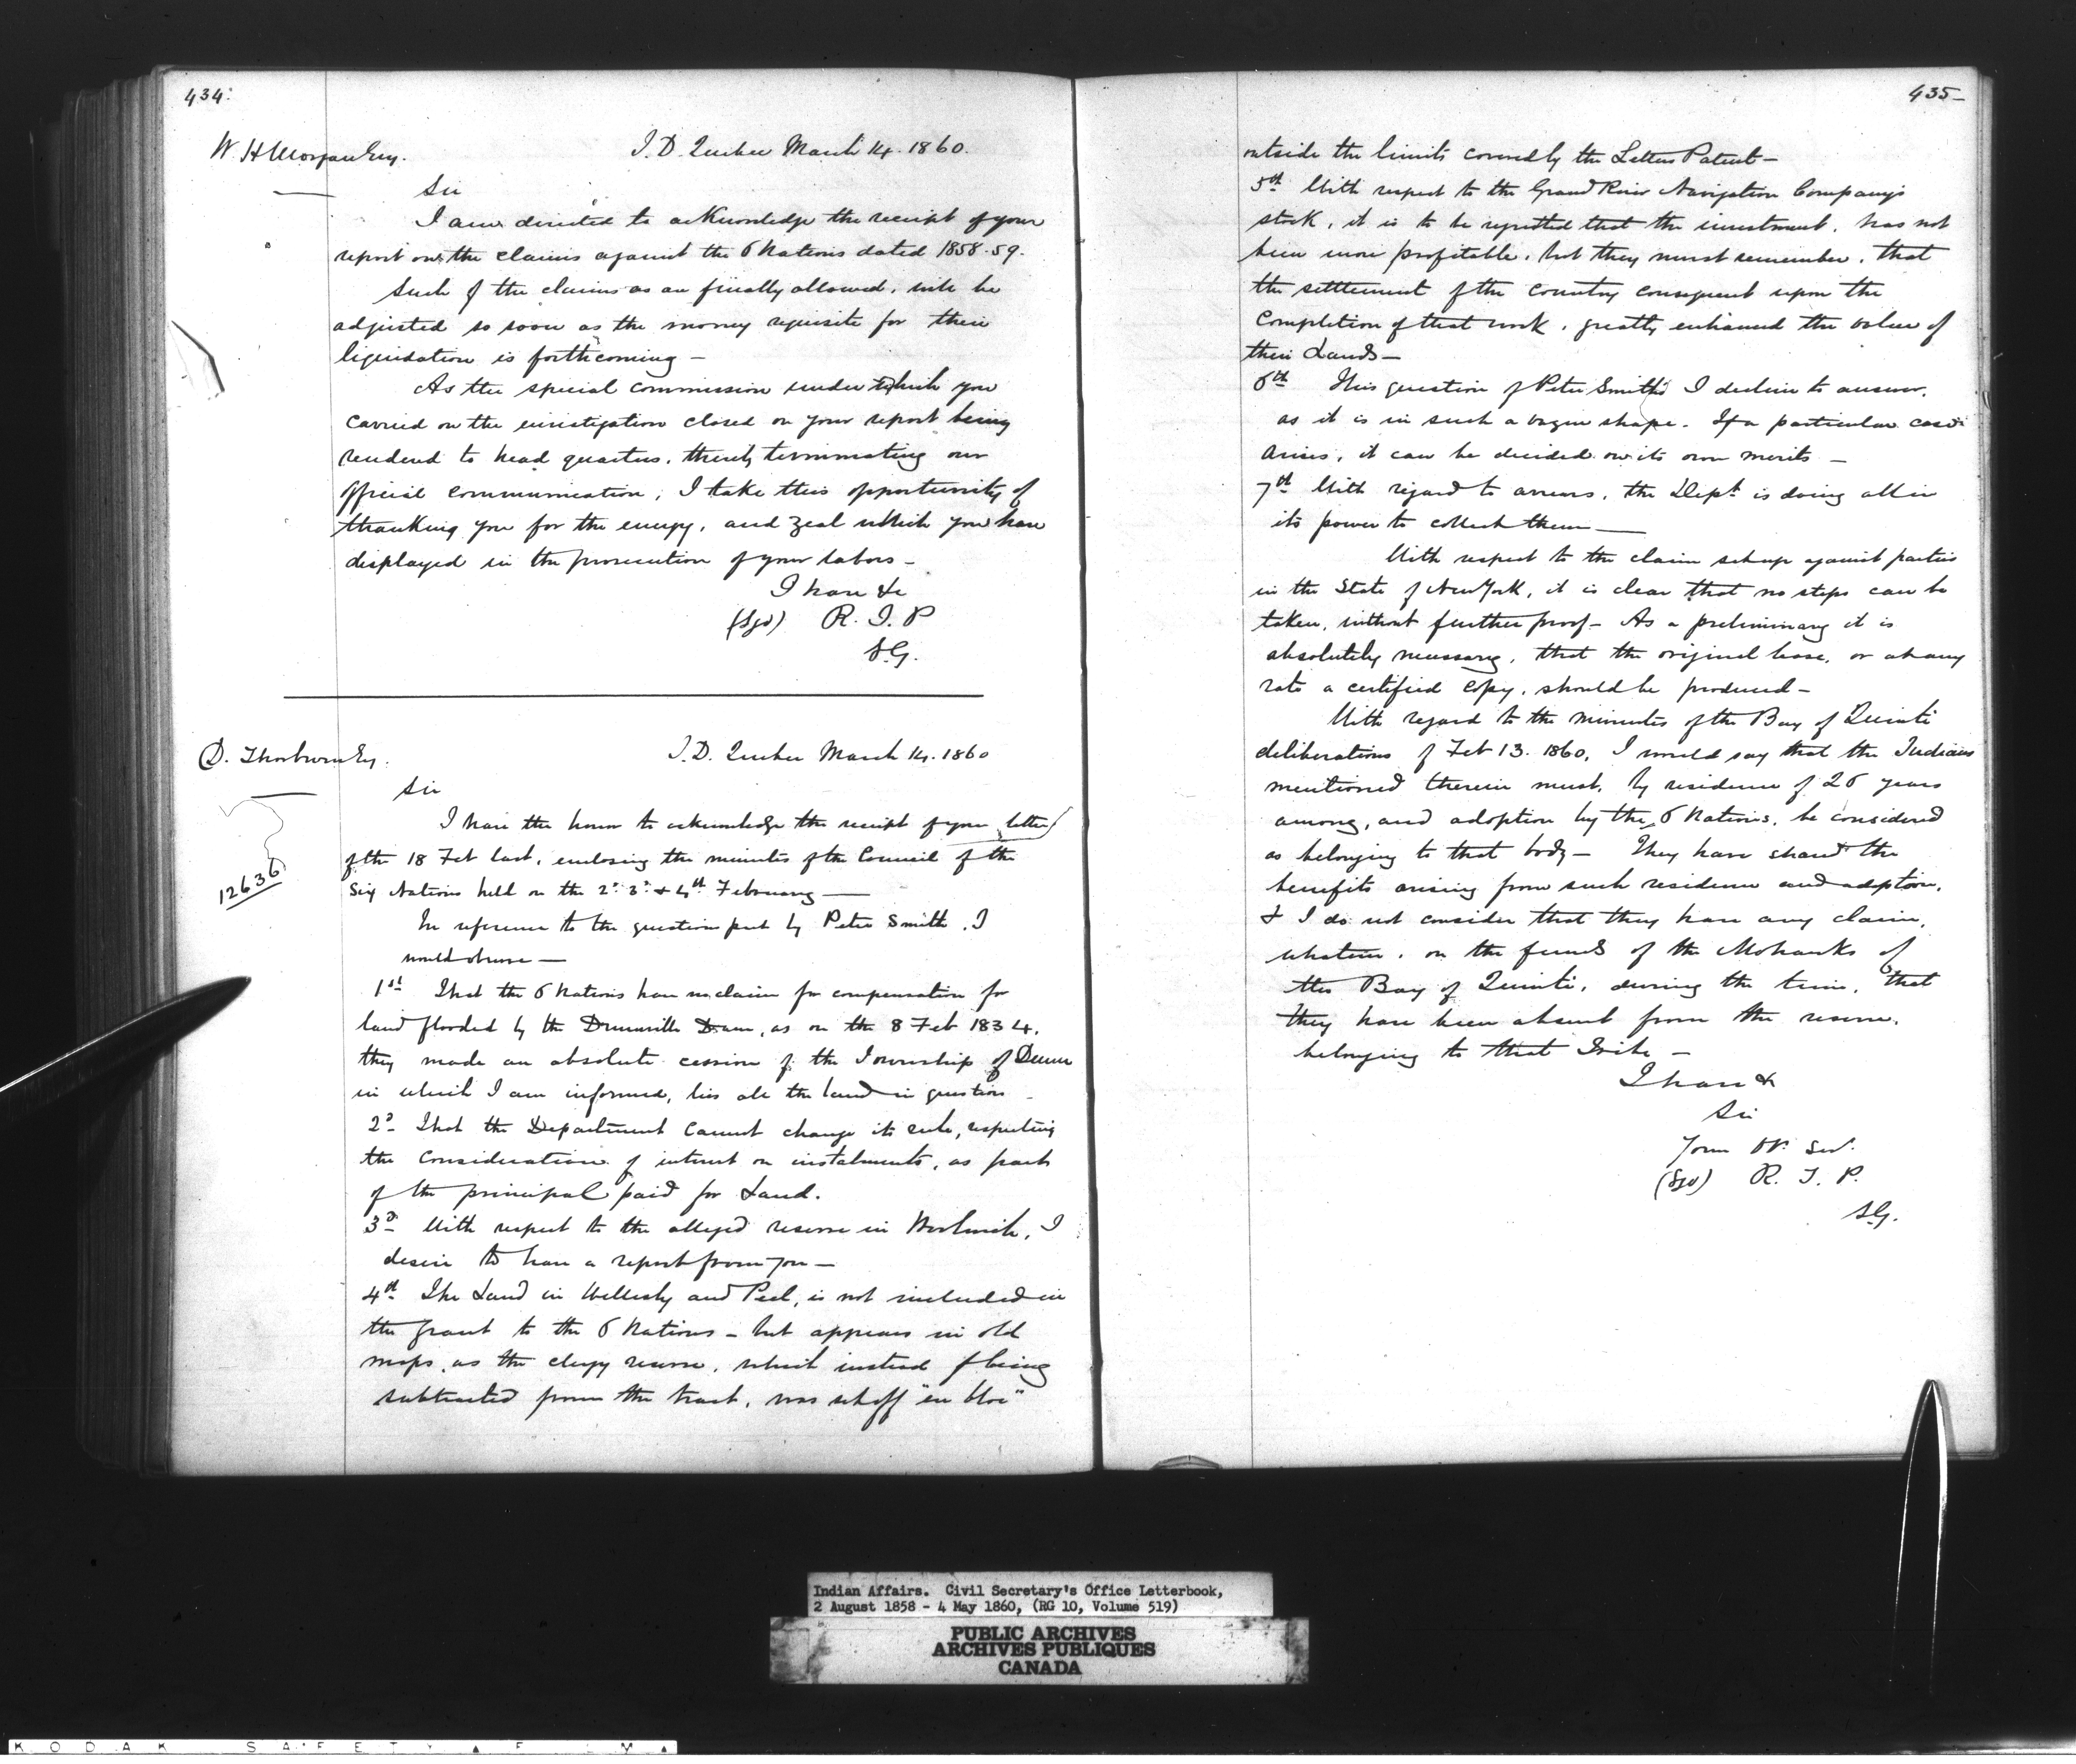 434.
W. H Morgan Esq.
I. D. Quebec March 14. 1860.
Sir
I am directed to acknowledge the receipt of your
report on the claims against the 6 Nations dated 1858-59.
Such of the claims as are finally allowed, will be
adjusted so soon as the money requisite for their
liquidation is forthcoming —
As the special commission under which you
carried on the investigation closed on your report being
rendered to head quarters, thereby terminating our
official communication, I take this opportunity of
thanking you for the energy, and zeal which you have
displayed in the prosecution of your labors —
I have &c
(Sgd) R. T. P
S.G.
D. Thorburn Esq.
I. D. Quebec March 14. 1860
Sir
12636
I have the honor to acknowledge the receipt of your letter
of the 18 Feb last, enclosing the minutes of the Council of the
Six Nations held on the 2d 3d & 4th February —
In reference to the question put by Peter Smith, I
would observe —
1st That the 6 Nations have no claim for compensation for
land flooded by the Dunnville Dam, as on the 8 Feb 1834,
they made an absolute cession of the Township of Dunn
in which I am informed, lies all the land in question —
2d That the Department cannot change its rule, respecting
the consideration of interest on instalments, as part
of the principal paid for Land.
3d With respect to the alleged reserve in Woolwich, I
desire to have a report from you —
4th The Land in Wellesly and Peel, is not included in
the grant to the 6 Nations — but appears in old
maps, as the clergy reserve, which instead of being
subtracted from the tract, was set off "en bloc"
435—
outside the limits covered by the Letters Patent —
5th With respect to the Grand River Navigation Company's
stock, it is to be regretted that the investment, has not
been more profitable, but they must remember, that
the settlement of the country consequent upon the
completion of that work, greatly enhanced the value of
their Lands —
6th This question of Peter Smith's I decline to answer,
as it is in such a vague shape. If a particular case
arises, it can be decided on its own merits —
7th With regard to arrears, the Dept. is doing all in
its power to collect them —
With respect to the claim set up against parties
in the State of New York, it is clear that no steps can be
taken, without further proof — As a preliminary it is
absolutely necessary, that the original lease, or at any
rate a certified copy, should be produced —
With regard to the minutes of the Bay of Quinté
deliberations of Feb 13. 1860, I would say that the Indians
mentioned therein must, by residence of 26 years
among, and adoption by the 6 Nations, be considered
as belonging to that body — They have shared the
benefits arising from such residence and adoption,
& I do not consider that they have any claim,
whatever, on the funds of the Mohawks of
the Bay of Quinté, during the time, that
they have been absent from the reserve,
belonging to that Tribe —
I have &
Sir
Your Ob. Ser.
(Sgd) R. T. P.
S.G.
Indian Affairs. Civil Secretary's Office Letterbook,
2 August 1858 - 4 May 1860, (RG 10, Volume 519)
PUBLIC ARCHIVES
ARCHIVES PUBLIQUES
CANADA
KODAK SAFETY